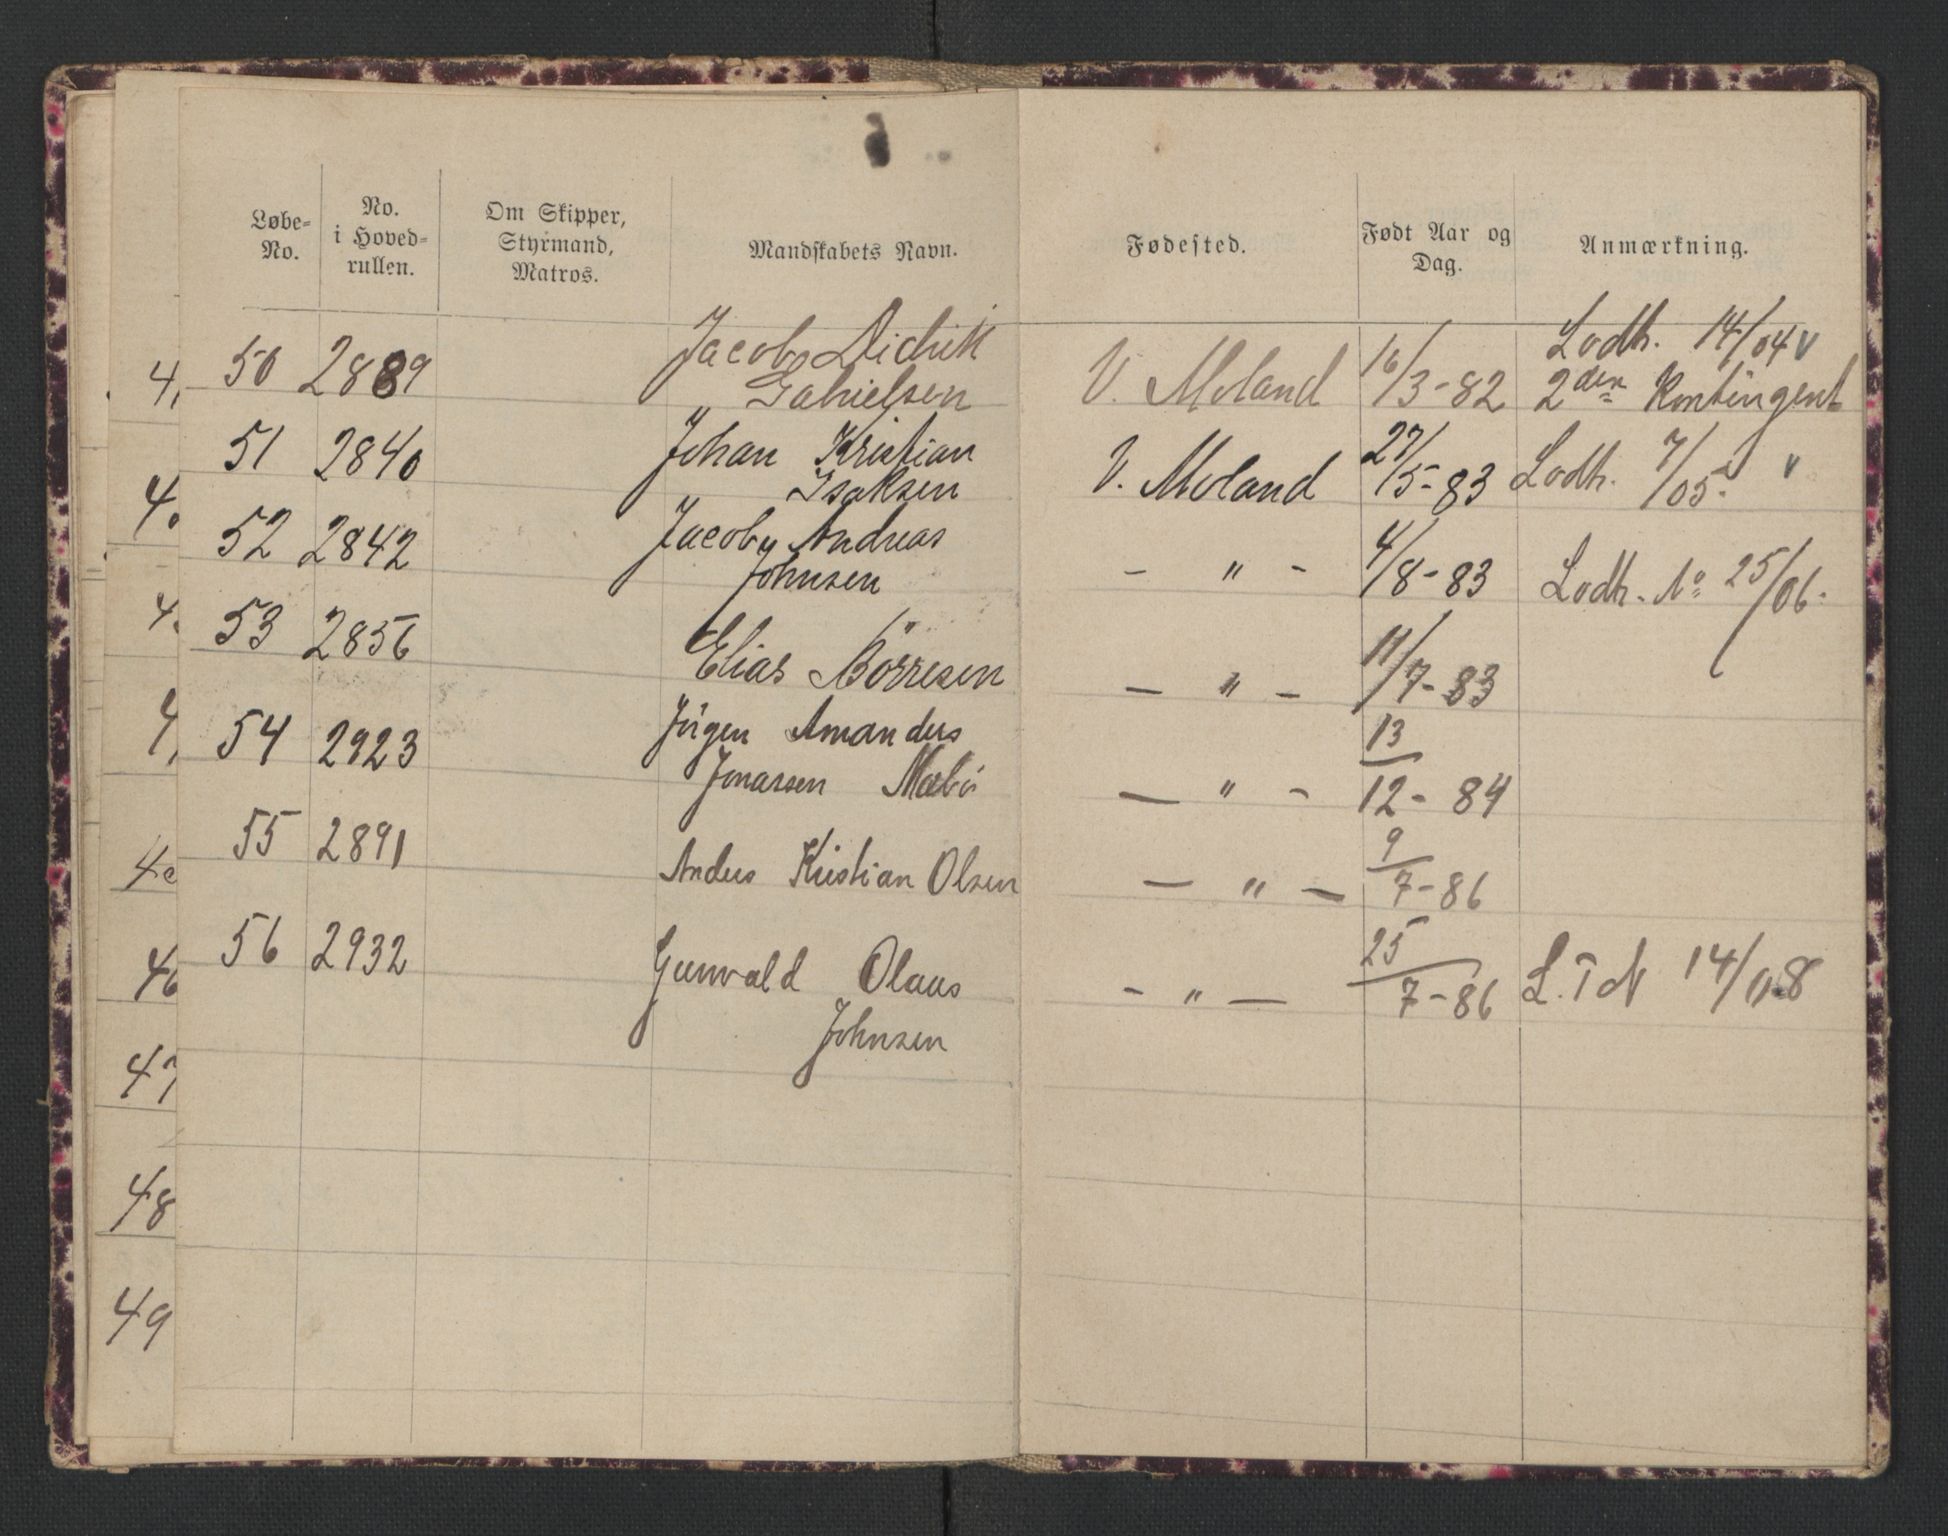 Løbe-
No.
No.
i Hoved-
rullen.
Om Skipper,
Styrmand,
Matros.
Mandskabets Navn.
Fødested.
Født Aar og
Dag.
Anmærkning.
50 2889 Jacob Didrik V. Moland 16/3-82 Lodh. 14/04 v
" Gabrielsen 2den Kontingent
51 2840 Johan Kristian V. Moland 27/5-83 Lodh. 7/05. v
Isaksen
52 2842 Jacob Andreas - " - 4/8-83 Lodh. No 25/06.
Johnsen
53 2856 Elias Börresen - " - 11/7-83
54 2923 Jörgen Amandus - " - 13/12-84
Jonassen Mæbö
55 2891 Anders Kristian Olsen - " - 9/7-86
56 2932 Gunvald Olaus - " - 25/7-86 L.T.N 14/08
Johnsen
4
4
4
4
4
46
47
48
49